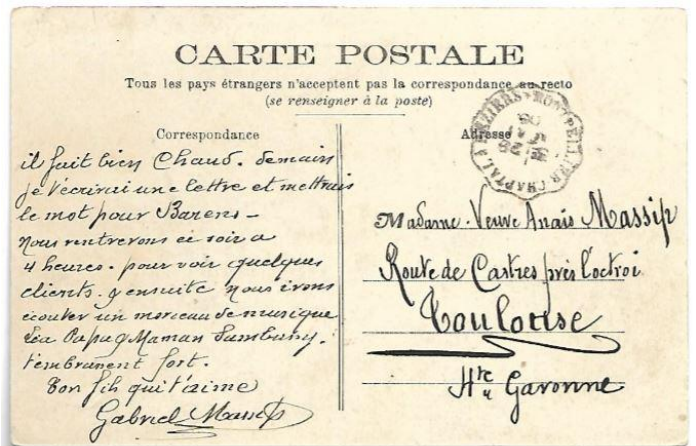 CARTE POSTALE
Tous les pays étrangers n'acceptent pas la correspondance au recto
(se renseigner à la poste)
Correspondance
il fait bien Chaud. demain
je t'écrirai une lettre et mettrais
le mot pour Barens -
nous rentrerons ce soir a
4 heures. pour voir quelques
clients. & ensuite nous irons
écouter un morceau de musique
Papa & Maman
t'embrassent fort.
Ton fils qui t'aime
Gabriel Massip
Adresse
BEZIERS MONTPELLIER-CHAPTAL
Madame Veuve Anaïs Massip
Route de Castres près l'octroi
Toulouse
Hte Garonne